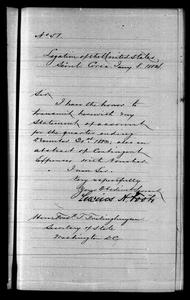 No 57.
Legation of the United States
Seoul Corea Jany 8. 1884
Sir
I have the honor to
transmit herewith my
Statement of account
for the quarter ending
December 31st 1883, also an
abstract of Contingent
Expenses with Vouchers.
I am Sir
Very respectfully
Your Obedient Servant
Lucius H. Foote
Hon. Fred. T. Frelinghuysen
Secretary of State
Washington D.C.